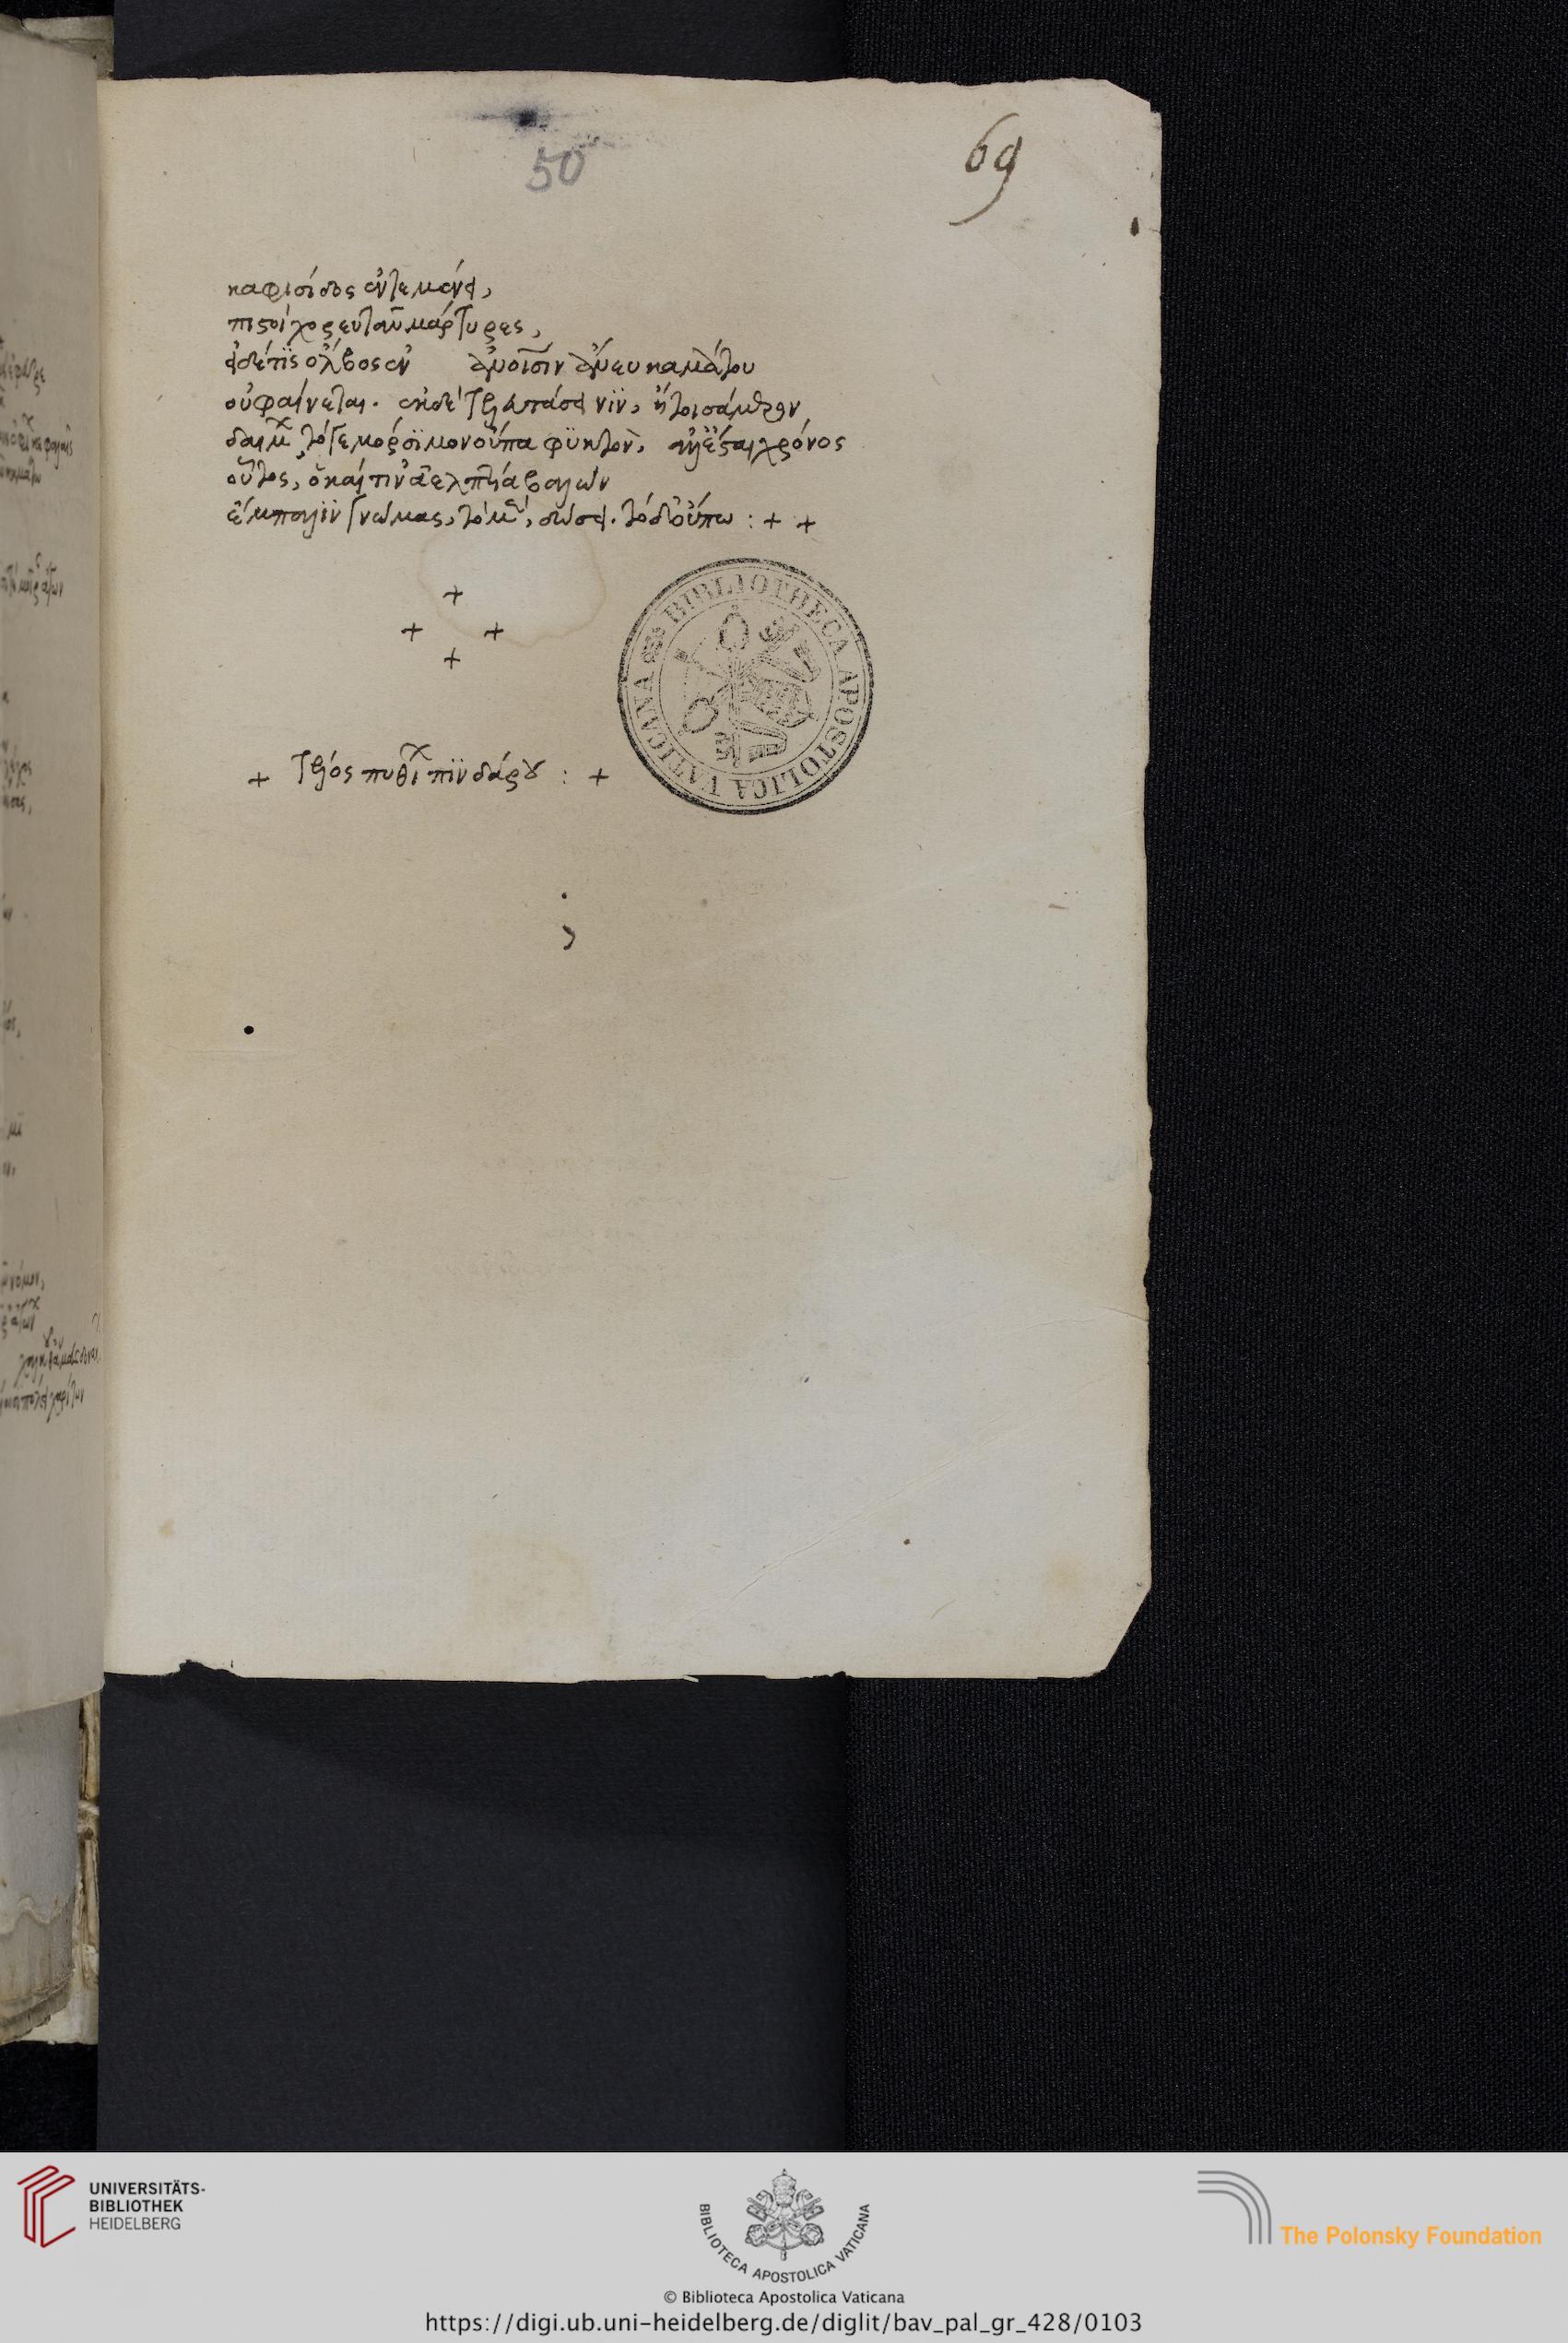 50
69
καφισίδος ἐν τεμένει,
πιστοὶ χορευτᾶν μάρτυρες,
εἰ δέ τις ὄλβος ἐν ἀνθρώποισιν ἄνευ καμάτου
οὐ φαίνεται. ἐκ δὲ τελευτάσει νιν, ἤτοι σάμερον
δαιμ τό γε μόρσιμον οὐ παρφυκτόν, ἀλλ' ἔσται χρόνος
οὗτος, ὃ καί τιν' ἀελπτίᾳ βαλὼν
ἔμπαλιν γνώμας, τὸ μὲν, δώσει. τὸ δ' οὔπω : + +
+
+ +
+
+ τέλος πυθι πινδάρου : +
BIBLIOTHECA APOSTOLICA VATICANA
UNIVERSITÄTS-
BIBLIOTHEK
HEIDELBERG
BIBLIOTECA APOSTOLICA VATICANA
The Polonsky Foundation
© Biblioteca Apostolica Vaticana
https://digi.ub.uni-heidelberg.de/diglit/bav_pal_gr_428/0103